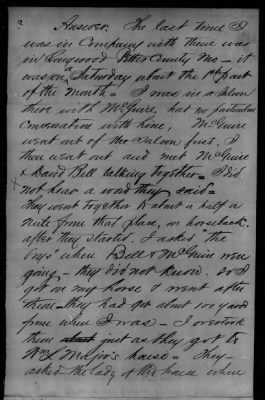 ?
Answer. The last time I
was in Company with there was
in Longwood Pettis County Mo - it
was on Saturday about the 1st part
of the month - I was in a Saloon
there with McGuire, had no particular
Conversation with him, McGuire
went out of the Saloon first, I
then went out and met McGuire
& David Bell talking together - I did
not hear a word they said -
they went together to about a half a
mile from that place, on horseback.
after they started I asked "the
boys" where Bell & McGuire were
going, - they did not know. so I
got on my horse & went after
them - they had got about 100 yards
from where I was - I overtook
them just as they got to
Wm L Major's house - they -
asked the lady of the house where